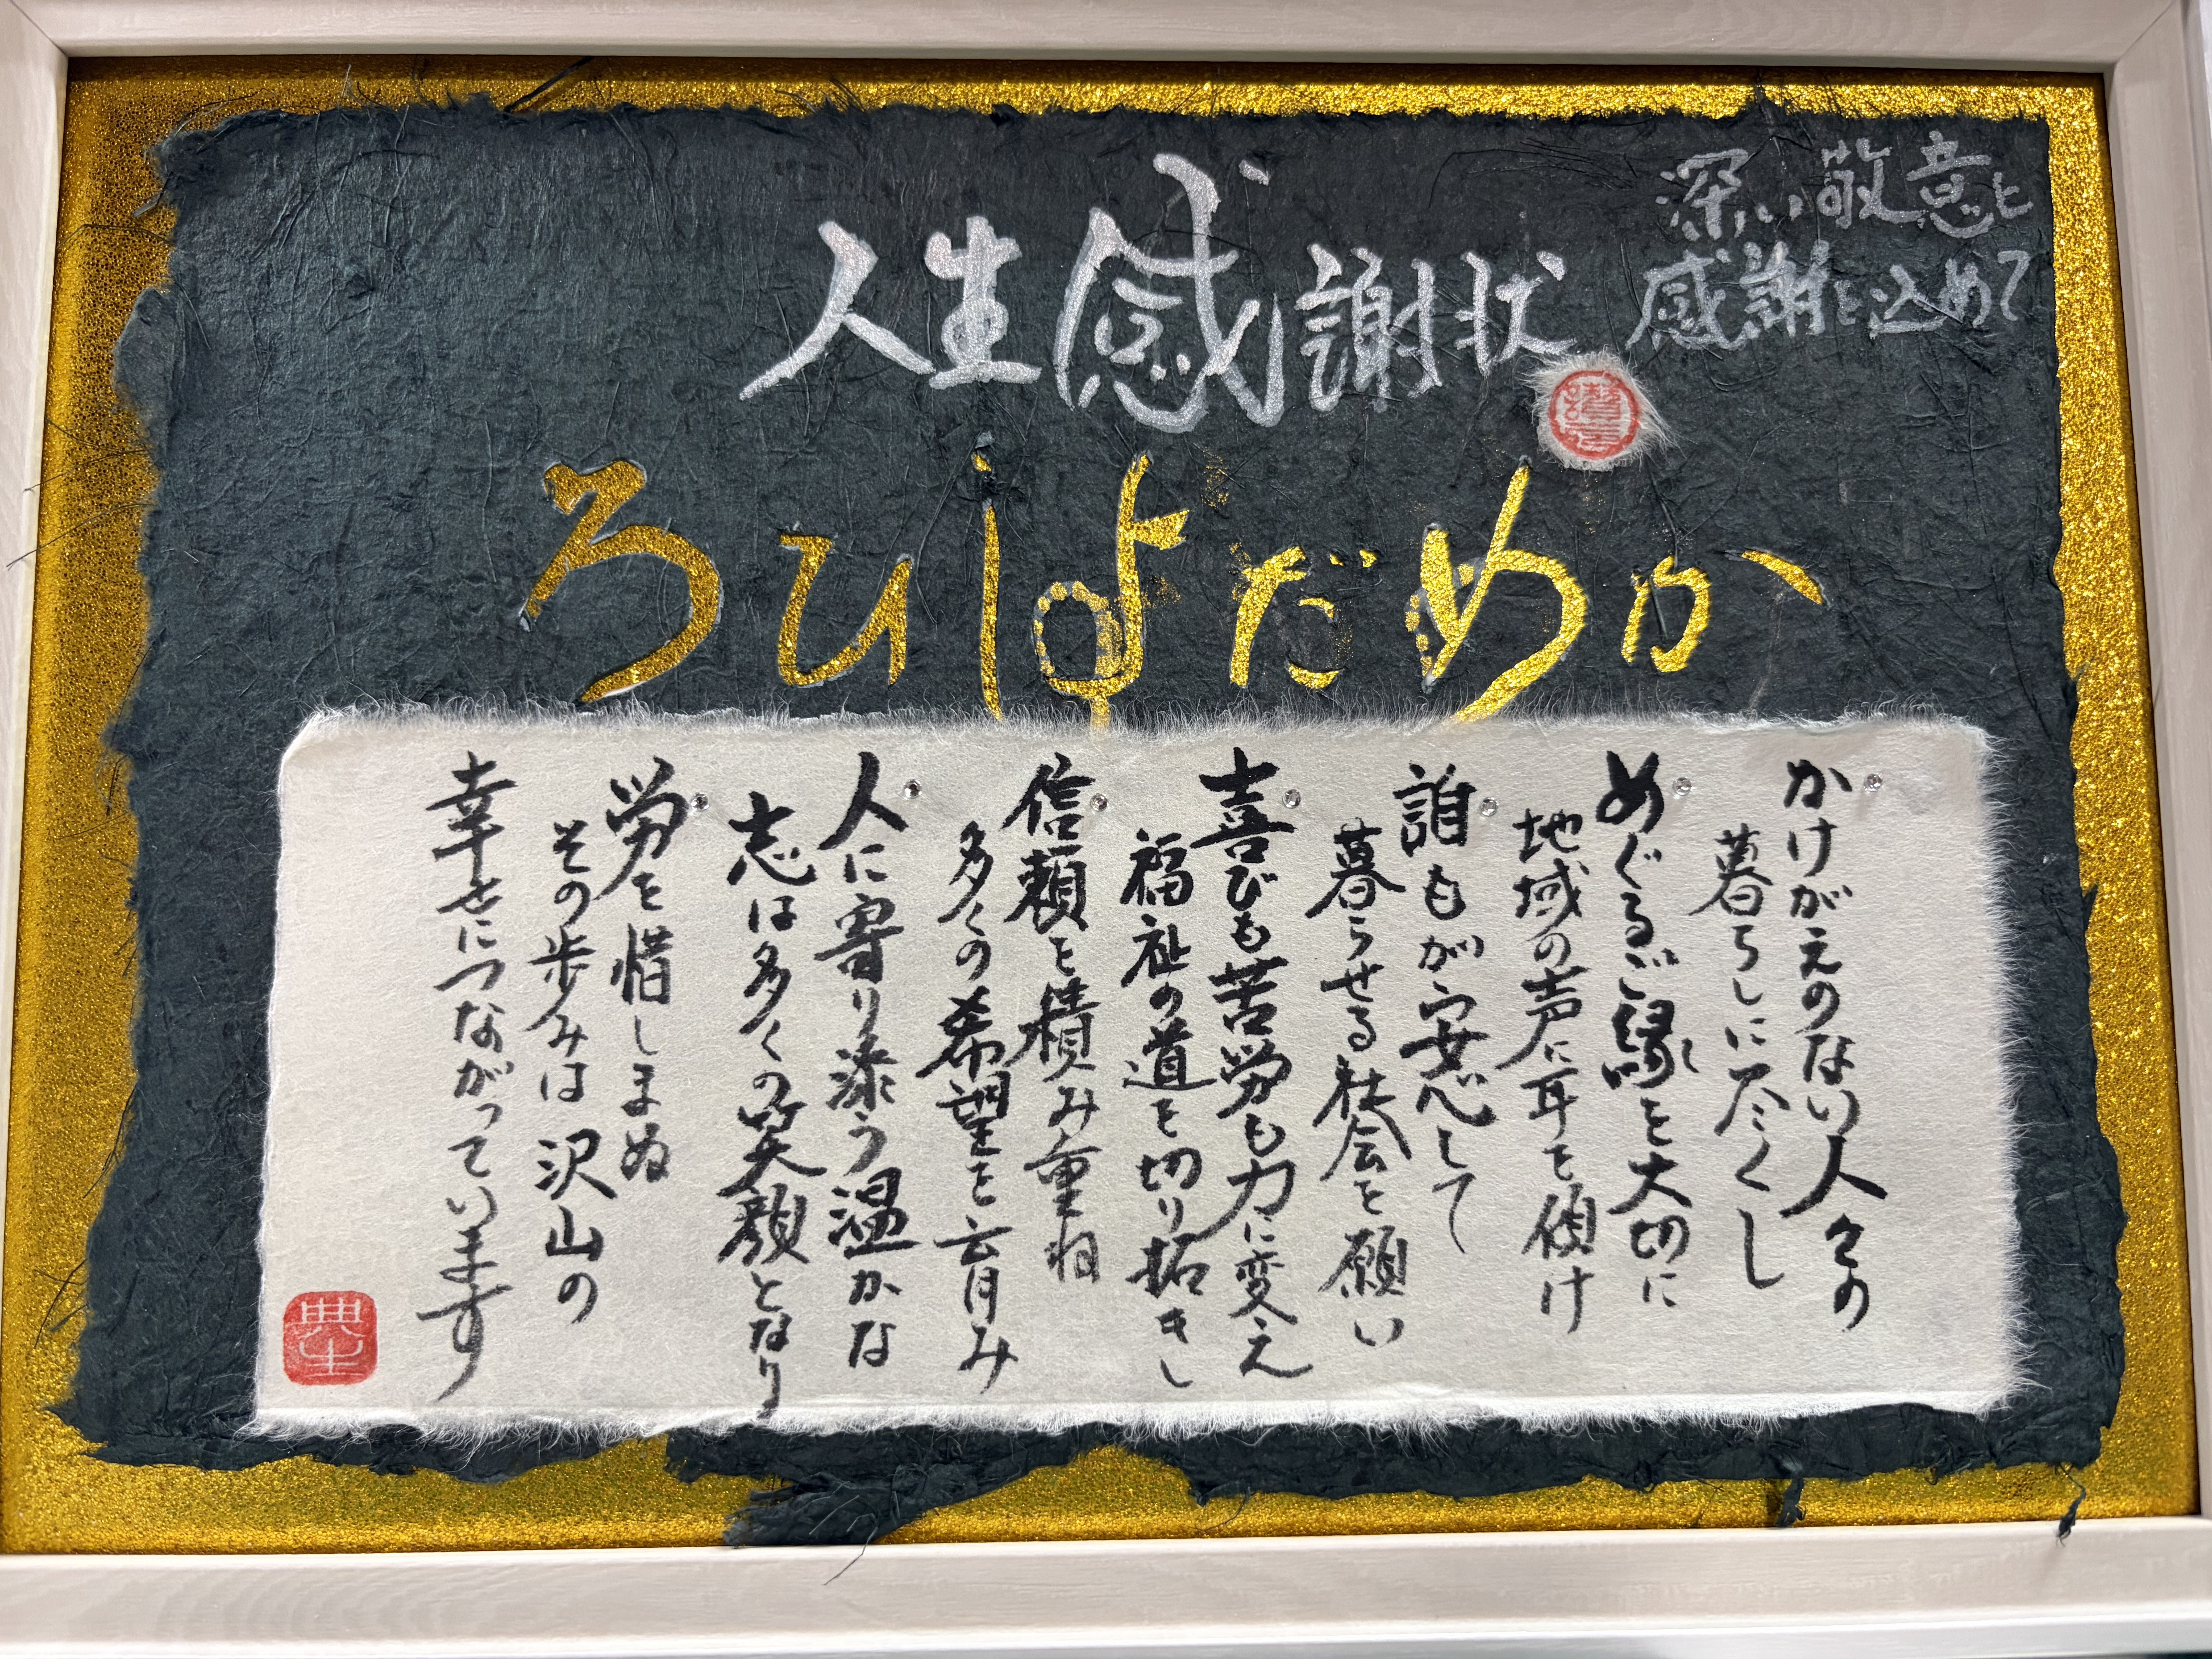 深い敬意と
感謝を込めて
人生感謝状
かめだよしひろ
かけがえのない人々の
暮らしに尽くし
めぐるご縁を大切に
地域の声に耳を傾け
誰もが安心して
暮らせる社会を願い
喜びも苦労も力に変え
福祉の道を切り拓きし
信頼を積み重ね
多くの希望を育み
人に寄り添う温かな
志は多くの笑顔となり
労を惜しまぬ
その歩みは沢山の
幸せにつながっています
典生